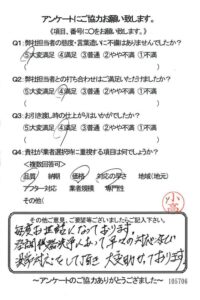 アンケートにご協力お願い致します。
《項目、番号に○をお願い致します。》
Q1:弊社担当者の態度・言葉遣いに不備はありませんでしたか?
⑤大変満足 ④満足 ③普通 ②やや不満 ①不満
Q2:弊社担当者との打ち合わせはご満足いただけましたか?
⑤大変満足 ④満足 ③普通 ②やや不満 ①不満
Q3:お引き渡し時の仕上がりはいかがでしたか?
⑤大変満足 ④満足 ③普通 ②やや不満 ①不満
Q4:当社が業者選択時に重視する項目は何でしょうか?
<複数回答可>
品質 納期 価格 対応の早さ 地域(地元)
アフター対応 業者規模 専門性
その他(
その他ご意見、ご要望等ございましたらご記入下さい。
毎度お世話になっております。
大変助かっております。
105706
〜アンケートのご協力ありがとうございました〜